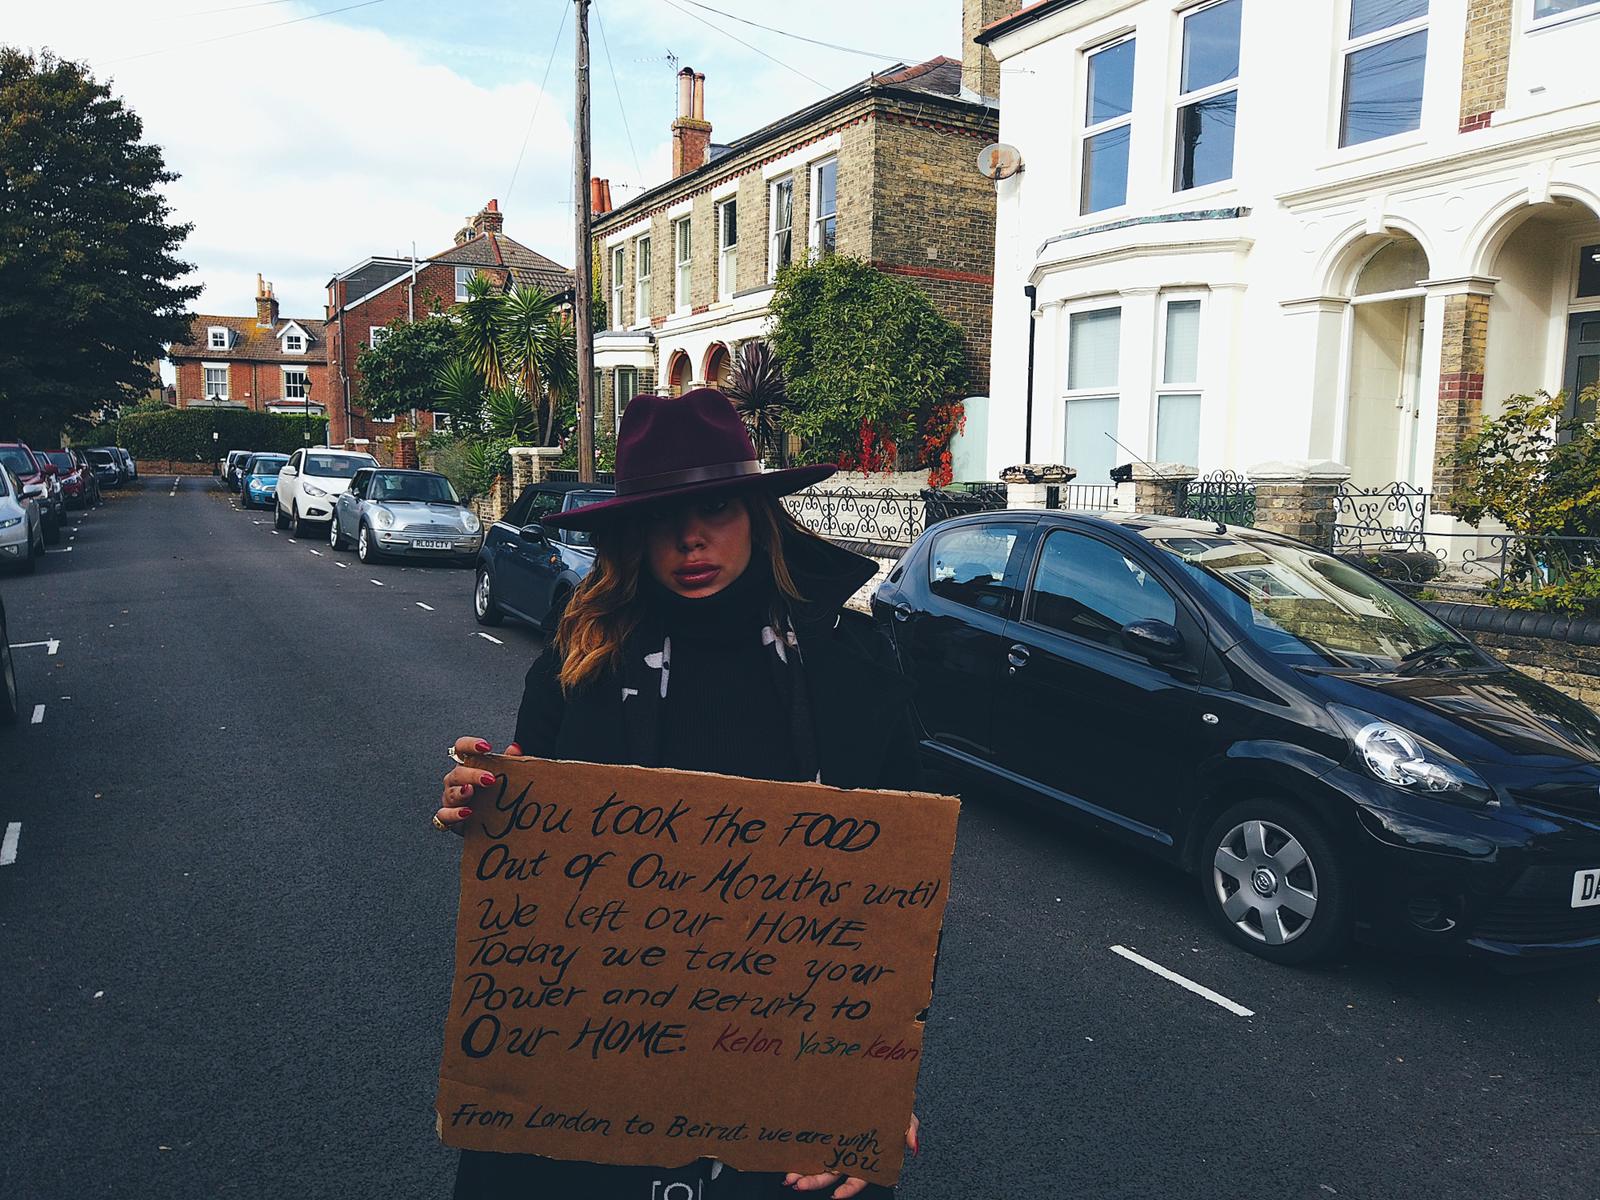 RL03 CTY
DA
You took the FOOD
Out of Our Mouths until
We left our HOME,
Today we take your
Power and Return to
Our HOME. Kelon Ya3ne Kelon
From London to Beirut, we are with
you